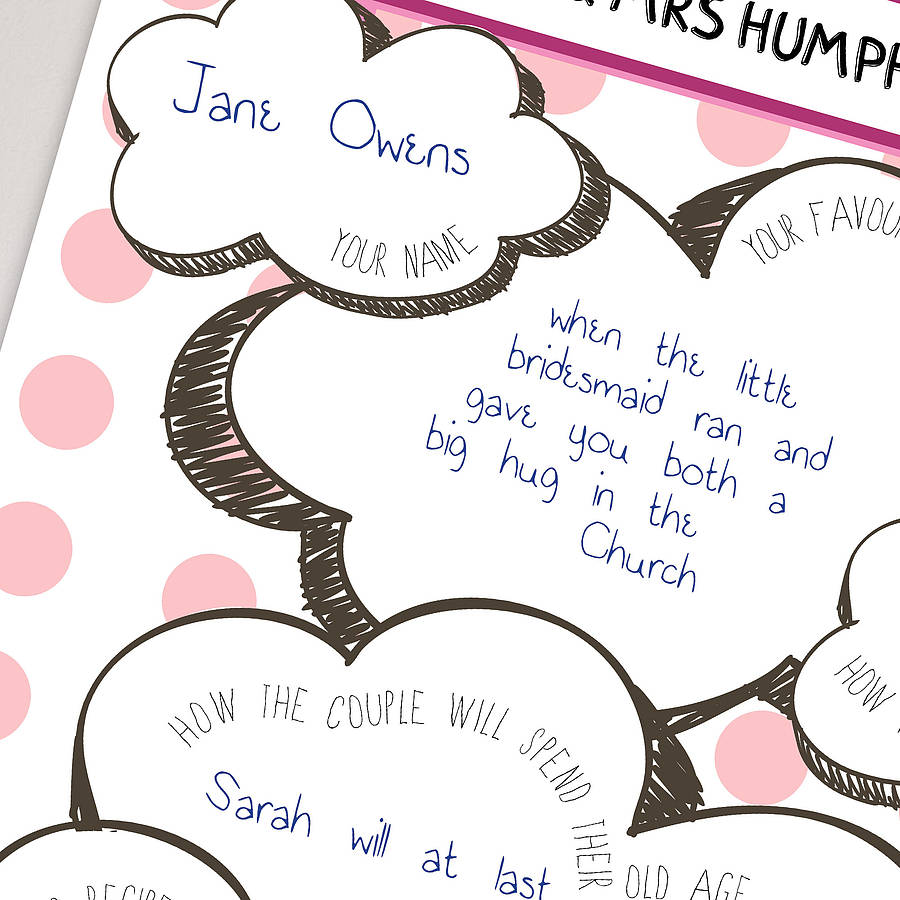 MRS
Jane Owens
YOUR NAME
YOUR
when the little
bridesmaid ran and
gave you both a
big hug in the
Church
HOW
HOW THE COUPLE WILL SPEND THEIR OLD AGE
Sarah will at last